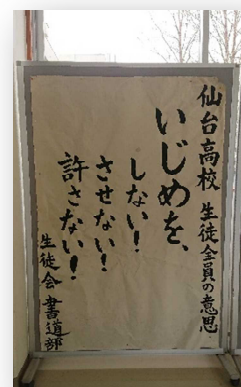 仙台高校 生徒全員の意思
いじめを、
しない!
させない!
許さない!
生徒会 書道部